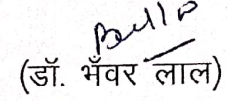 (डॉ. भँवर लाल)